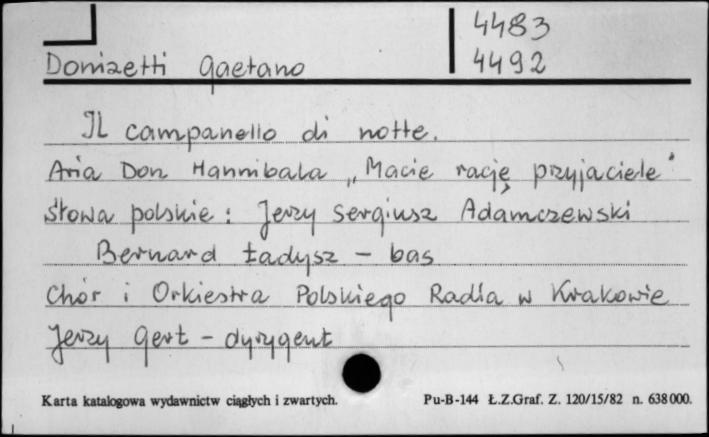 4483
Donizetti Gaetano 4492
Il campanello di notte.
Aria Don Hannibala „Macie rację przyjaciele"
Słowa polskie: Jerzy Sergiusz Adamczewski
Bernard Ładysz - bas
Chór i Orkiestra Polskiego Radia w Krakowie
Jerzy Gert - dyrygent
Karta katalogowa wydawnictw ciągłych i zwartych. Pu-B-144 Ł.Z.Graf. Z. 120/15/82 n. 638000.